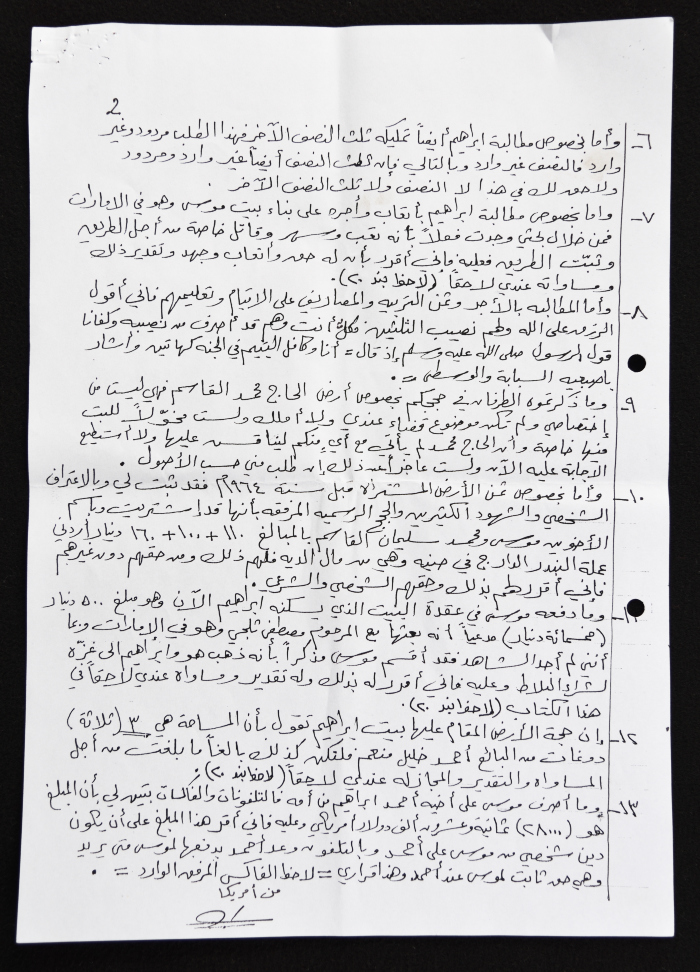 2
٦- وأما بخصوص مطالبة ابراهيم أيضاً تمليكه ثلث النصف الآخر فهذا الطلب مردود وغير
وارد فالنصف غير وارد وبالتالي فإن ثلث النصف أيضاً غير وارد ومردود
ولا حق لك في هذا لا النصف ولا ثلث النصف الآخر .
٧- واما بخصوص مطالبة ابراهيم بأتعاب وأجره على بناء بيت موسى وهو في الامارات
فمن خلال بحثي وجدت فعلاً بأنه تعب وسهر وقاتل خاصة من أجل الطريق
وثبّت الطريق فعليه فإني أقرر بأن له حق وأتعاب وجهد وتقدير ذلك
ومساواته عندي لاحقاً (لاحظ بند ٢٠).
٨- وأما المطالبه بالأجر وثمن التربيه والمصاريف على الايتام وتعليمهم فإني أقول
الرزق على الله ولهم نصيب الثلثين فكلٌّ أنت وهم قد أصرف من نصيبه وكفانا
قول الرسول صلى الله عليه وسلم إذ قال = أنا وكافل اليتيم في الجنه كهاتين وأشار
بإصبعيه السبابة والوسطى = .
٩- وما ذكرتموه الطرفان في حججكم بخصوص أرض الحاج محمد القاسم فهي ليست من
إختصاصي ولم تكن موضوع قضاء عندي ولا أملك ولست مخوّلاً للبت
فيها خاصة وأن الحاج محمد لم يأتي مع أيٍ منكم ليناقش عليها ولا أستطيع
الاجابة عليه الآن ولست عاجز أعن ذلك إن طلب مني حسب الأصول .
١٠- وأما بخصوص ثمن الأرض المشتراه قبل سنة ١٩٦٤م فقد ثبت لي وبالاعتراف
الشخصي والشهود الكثيرين والحجج الرسميه المرفقه بأنها قد أشتريت وباسم
الأخوين موسى ومحمد سلمان القاسم بالمبالغ ١١٠ + ١٠٠ + ١٦٠ دينار أردني
عملة البندر الدارج في حينه وهي من مال الديه فلهم ذلك ومن حقهم دون غيرهم
فإني أقرر لهم بذلك وحقهم الشخصي والشرعي .
١١- وما دفعه موسى في عقدة البيت الذي يسكنه ابراهيم الآن وهو مبلغ ٥٠٠ دينار
(خمسمائة دينار) مدعياً أنه بعثها مع المرحوم مصطفى ثلجي وهو في الإمارات وبما
أنني لم أجد الشاهد فقد أقسم موسى مذكراً بأنه ذهب هو وابراهيم الى غزة
لشراء البلاط وعليه فاني أقرر له بذلك وله تقدير ومساواة عندي لاحقاً في
هذا الكتاب (لاحظ بند ٢٠).
١٢- إن حجة الأرض المقام عليها بيت ابراهيم تقول بأن المساحة هي ٣ (ثلاثة)
دونمات من البائع أحمد خليل منعم فلتكن كذلك بالغاً ما بلغت من أجل
المساواة والتقدير والمجازله عندي لاحقاً (لاحظ بند ٢٠).
١٣- وما أصرف موسى على أخيه أحمد ابراهيم من أمه فالتلفونات والفاكسات يتبين لي بأن المبلغ
هو (٢٨٠٠٠) ثمانية وعشرون ألف دولار أمريكي وعليه فاني أقر هذا المبلغ على أن يكون
دين شخصي من موسى على أحمد وبالتلفون وعد أحمد بدفعها لموسى متى يريد
وهي حق ثابت لموسى عند أحمد وهذا قراري = لاحظ الفاكس المرفق الوارد = .
من أمريكا